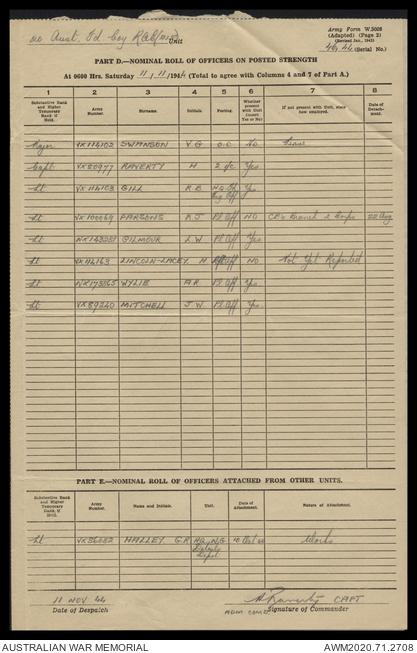 Army Form W.3008
(Adapted) (Page 2)
(Revised Jan., 1943)
Aust. Fd. Coy RAE (AIF) Unit
46/44 (Serial No.)
PART D.—NOMINAL ROLL OF OFFICERS ON POSTED STRENGTH
At 0600 Hrs. Saturday 11/11/1944 (Total to agree with Columns 4 and 7 of Part A.)
1 2 3 4 5 6 7 8
Substantive Rank and Higher Temporary Rank if Held. Army Number. Surname. Initials. Posting. Whether present with Unit (insert Yes or No) If not present with Unit, state how employed. Date of Detachment.
Major VX114102 SWANSON V.G O.C No Leave
Capt VX80977 RAVERTY H 2 i/c Yes
Lt VX114103 GILL R.B Yes
Lt VX100069 PARSONS K.J Pl Off NO CE's Branch 2 Corps 22 Aug
Lt GILMOUR L.W Pl Off Yes
Lt VX114163 LINCOLN-LACEY H Pl Off NO Not Yet Reported
Lt WYLIE A.R Pl Off Yes
Lt VX89240 MITCHELL J.W Pl Off Yes
PART E.—NOMINAL ROLL OF OFFICERS ATTACHED FROM OTHER UNITS.
Substantive Rank and Higher Temporary Rank if Held. Army Number. Name and Initials. Unit. Date of Attachment. Nature of Attachment.
Lt VX86082 HALLEY G.R HQ N.G Depot 10 Oct 44 Works
11 NOV 44
Date of Despatch
H Raverty CAPT
ADM COMD Signature of Commander
AUSTRALIAN WAR MEMORIAL
AWM2020.71.2708